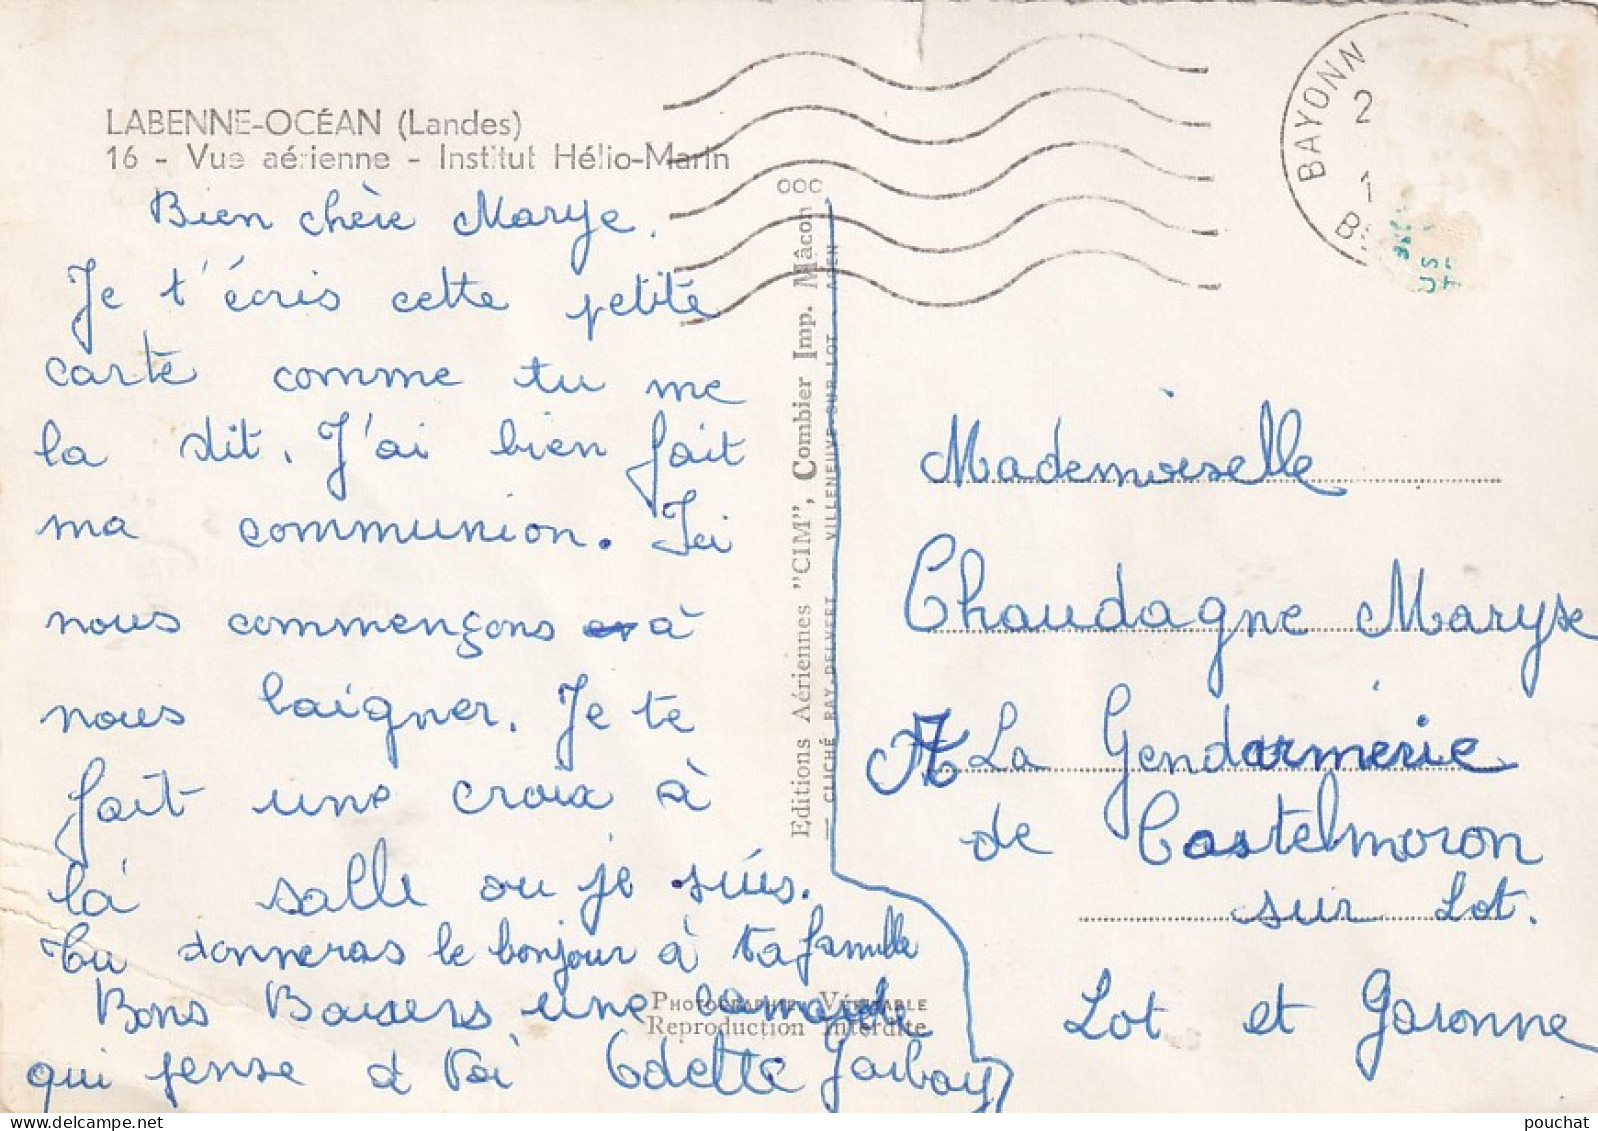 LABENNE-OCÉAN (Landes)
16 - Vue aérienne - Institut Hélio-Marin
Bien chère Maryse.
Je t'écris cette petite
carte comme tu me
la dit. J'ai bien fait
ma communion. Ici
nous commençons à
nous baigner. Je te
fait une croix à
là salle ou je súis.
Tu donneras le bonjour à ta famille
Bons Baisers une camarade
qui pense à toi Odette Garbay
Editions Aériennes "CIM", Combier Imp. Mâcon
CLICHÉ RAY-DELVERT - VILLENEUVE-SUR-LOT - AGEN
PHOTOGRAPHIE VÉRITABLE
Reproduction Interdite
BAYONN
2
1
Mademoiselle
Chaudagne Maryse
A La Gendarmerie
de Castelmoron
sur Lot.
Lot et Garonne
pouchat